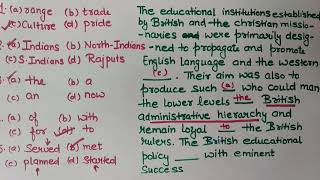 1. (a) range (b) trade
(c) Culture (d) pride
2. (a) Indians (b) North-Indians
(c) S.Indians (d) Rajputs
3. (a) the (b) a
(c) an (d) now
4. (a) of (b) with
(c) for (d) to
5. (a) Served (b) met
(c) planned (d) Started
The educational institutions established
by British and the christian missio-
naries were primarily desig-
ned to propagate and promote
English language and the western
(c). Their aim was also to
produce such (a) who could man
the lower levels the British
administrative hierarchy and
remain loyal to the British
rulers. The British educational
policy ___ with eminent
Success